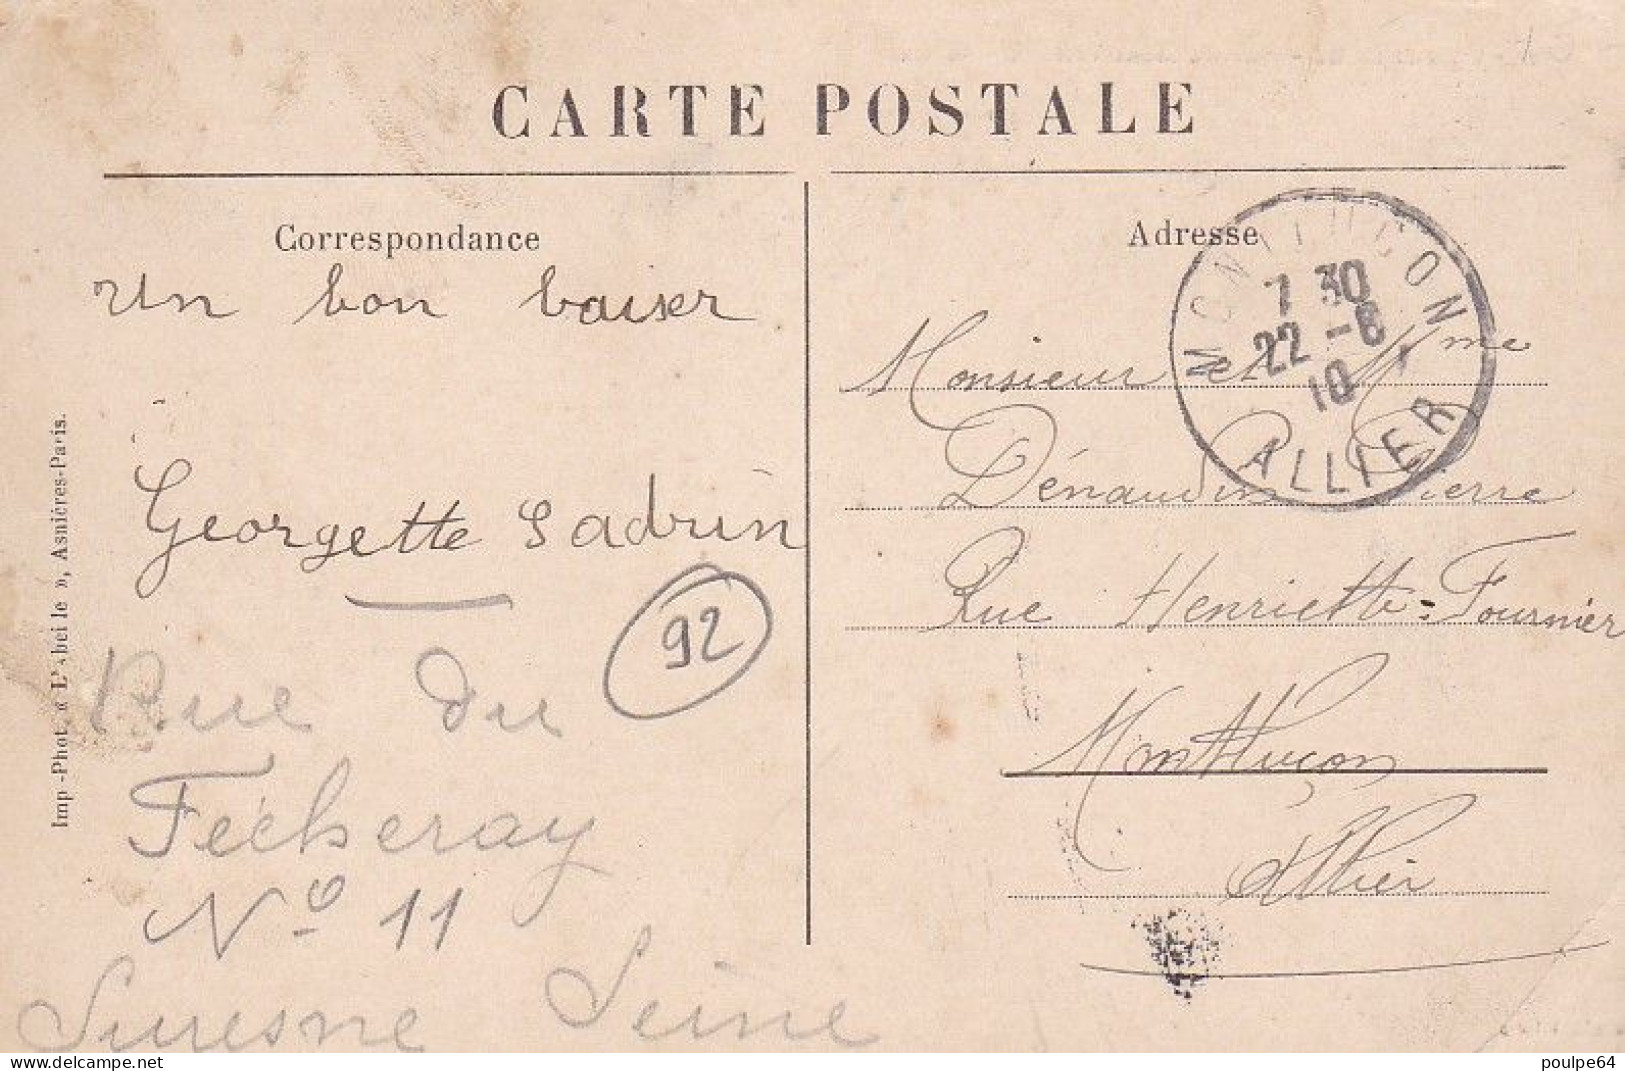 CARTE POSTALE
Correspondance
Un bon baiser
Georgette Ladrin
92
Rue du
Fécheray
No 11
Suresne Seine
Imp-Phot. « L'Abeille », Asnières-Paris.
Adresse
MONTLUCON
7 30
22 -6
10
ALLIER
Monsieur et Mme
Dénaudin Pierre
Rue Henriette-Fournier
Montluçon
Allier
delcampe.net
poulpe64